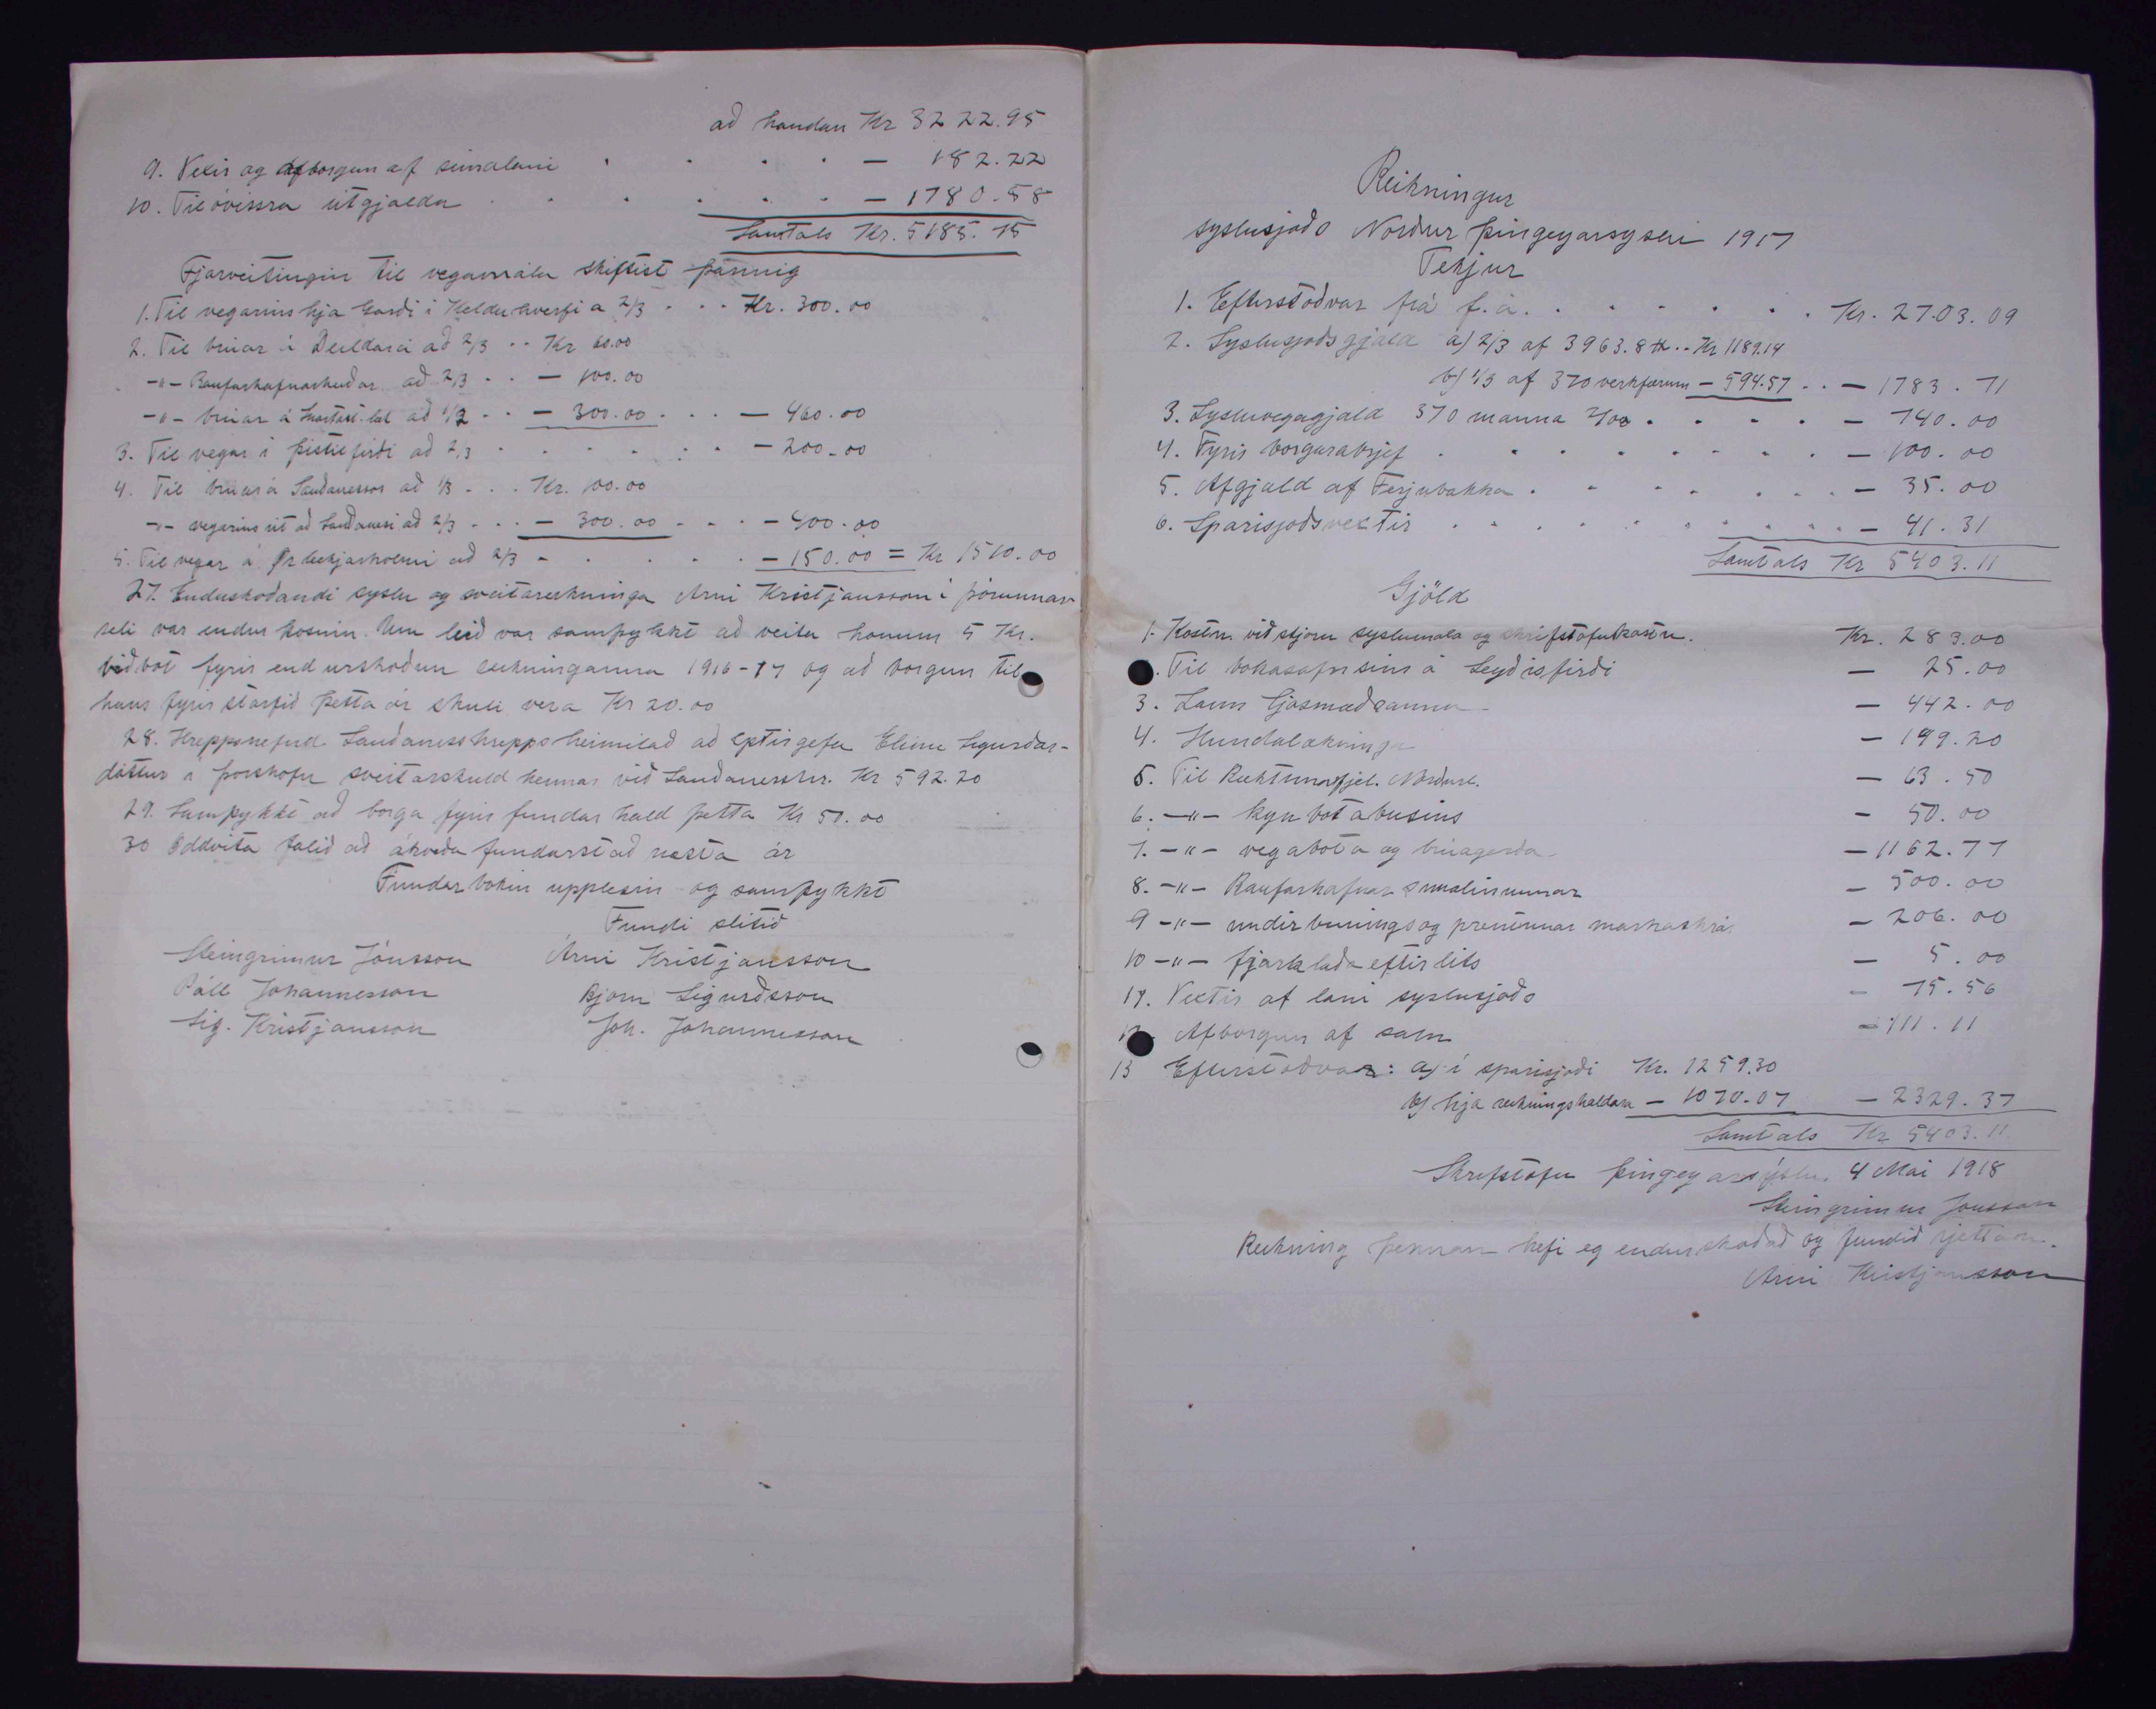 að handan Kr 3222.95
9. Vexir og afborgun af simaláni . . . . . — 182.22
10. Til óvissra útgjalda . . . . . . — 1780.58
Samtals Kr. 5185.75
Fjarveitingin til vegamála skiftist þannig
1. Til vegarins hja Garði i Kelduhverfi a 2/3 . . . Kr. 300.00
2. Til brúar á Deildará að 2/3 . . Kr 60.00
-"- Raufarhafnarhudar að 2/3 . . — 100.00
-"- brúar á að 1/2 . . — 300.00 . . . — 460.00
3. Til vegar i þistilfirði að 2/3 . . . . . . — 200.00
4. Til brúar á Sauðanessos að 1/3 . . . Kr. 100.00
-"- vegarins út að Sauðanesi að 2/3 . . . — 300.00 . . . — 400.00
5. Til vegar á Brekknaholmi að 2/3 - . . . . . — 150.00 = Kr 1510.00
27. Enduskoðandi syslu og sveitareikninga Arni Kristjansson i þórunnar
seli var endur kosinn. Um leið var samþykkt að veita honum 5 Kr.
viðbót fyrir endurskoðun reikninganna 1916-17 og að borgun til
hans fyrir starfið þetta ár skuli vera Kr 20.00
28. Hreppsnefnd Sauðanesshrepps heimilað að eptirgefa Elinu Sigurðar-
dóttur á þorshöfn sveitarskuld hennar við Sauðaneshr. Kr 592.20
29. Samþykkt að borga fyrir fundar hald þetta Kr 50.00
30 Oddvita falið að ákveða fundarstað næsta ár
Fundarbókin upplesin og samþykkt
Fundi slitið
Steingrimur Jónsson Árni Kristjansson
Páll Johannesson Bjorn Sigurðsson
Sig. Kristjansson Joh. Johannesson
Reikningur
syslusjoðs Norður þingeyarsyslu 1917
Tekjur
1. Efterstöðvar frá f. á. . . . . . . . Kr. 2703.09
2. Syslusjoðsgjald a) 2/3 af 3963.8 H . . Kr 1189.14
b) 1/3 af 370 verkfærum — 594.57 . . — 1783.71
3. Sysluvegagjald 370 manna 2/00 . . . . . — 740.00
4. Fyrir borgarabrjef . . . . . . . . — 100.00
5. Afgjald af Ferjubakka . . . . . . . — 35.00
6. Sparisjoðsvextir . . . . . . . . . . . — 41.31
Samtals Kr 5403.11
Gjöld
1. Kostn. við stjorn syslumala og skrifstofukostn. Kr. 283.00
. Til bokasafnsins á Seyðisfirði — 25.00
3. Laun ljosmæðranna — 442.00
4. Hundalækninga — 199.20
5. Til Ræktunarfjel. Norðurl. — 63.50
6. -"- kynbotabusins — 50.00
7. -"- vegabóta og brúagerða — 1162.77
8. -"- Raufarhafnar simalinunnar — 500.00
9 -"- undirbunings og prentunar markaskrár — 206.00
10 -"- fjarklaðaeftirlits — 5.00
11. Vextir af lani syslusjoðs — 75.56
Afborgun af sama — 111.11
13 Efterstöðvar: a) i sparisjoði Kr. 1259.30
b) hja reikningshaldara — 1070.07 — 2329.37
Samtals Kr 5403.11
Skrifstofu þingeyarsýslu, 4 Mai 1918
Steingrimur Jonsson
Reikning þennan hefi eg endurskoðað og fundið rjettan.
Arni Kristjansson